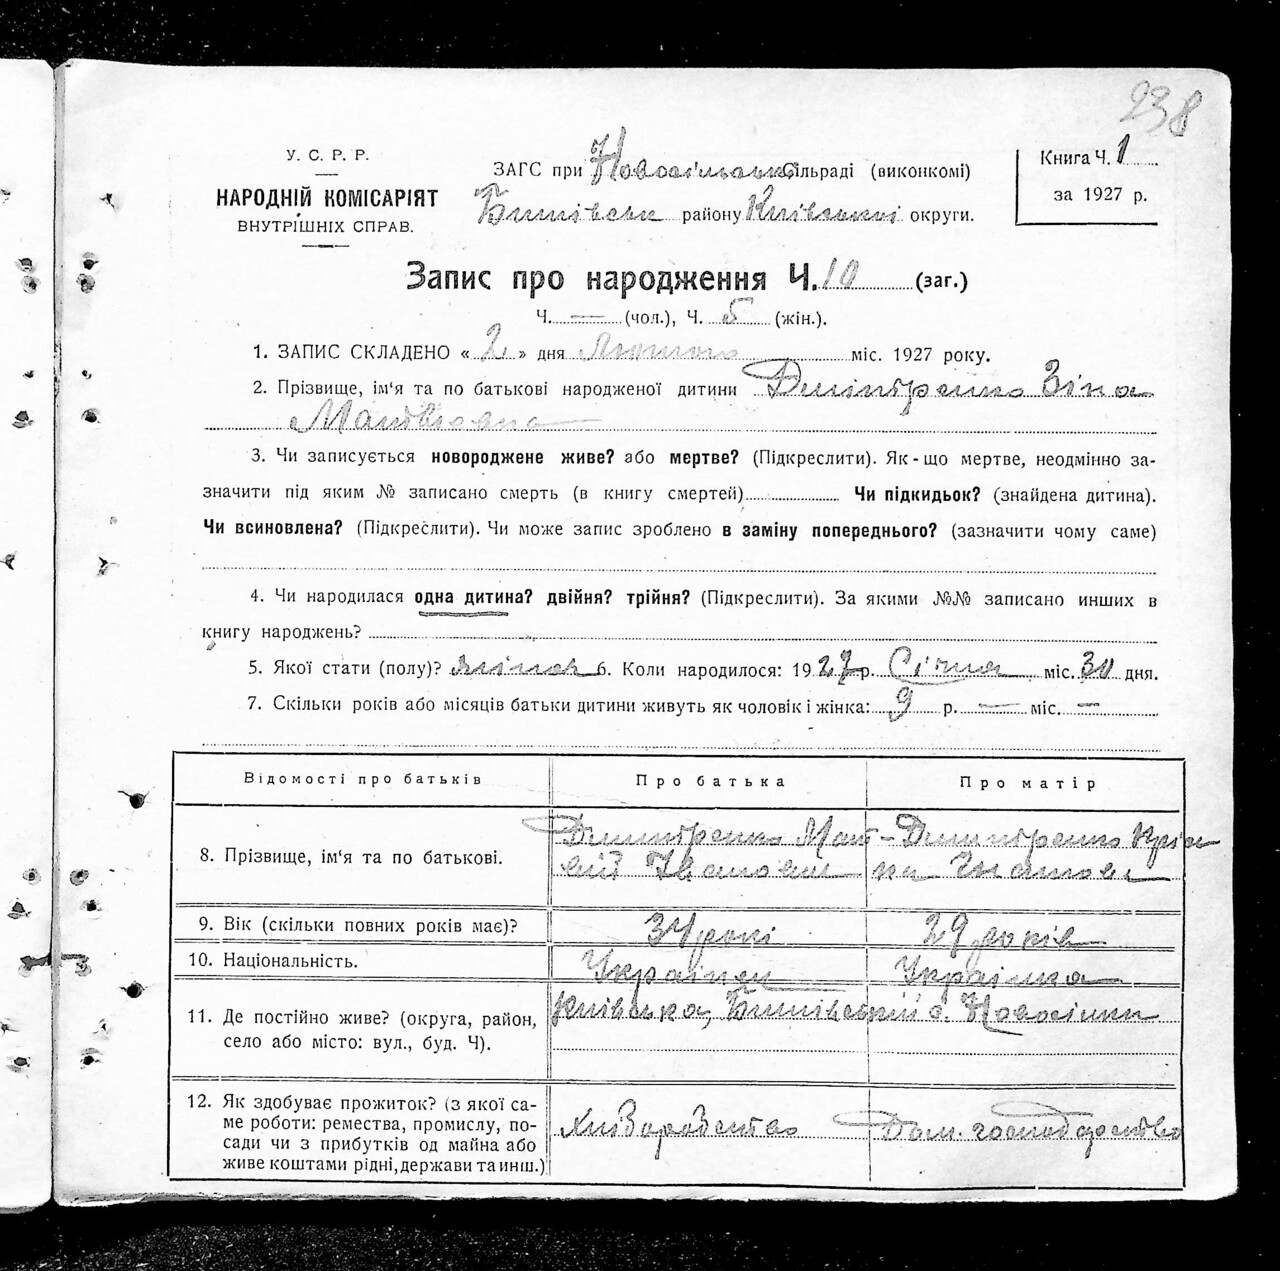 238
У. С. Р. Р.
НАРОДНІЙ КОМІСАРІЯТ
ВНУТРІШНІХ СПРАВ.
ЗАГС при Новосільської сільраді (виконкомі)
Бишівськ району Київської округи.
Книга Ч. 1
за 1927 р.
Запис про народження Ч. 10 (заг.)
Ч. — (чол.), Ч. 5 (жін.).
1. ЗАПИС СКЛАДЕНО « 2 » дня Лютого міс. 1927 року.
2. Прізвище, ім'я та по батькові народженої дитини Дмітренко Зіна
Матвіовна
3. Чи записується новороджене живе? або мертве? (Підкреслити). Як-що мертве, неодмінно за-
значити під яким № записано смерть (в книгу смертей) Чи підкидьок? (знайдена дитина).
Чи всиновлена? (Підкреслити). Чи може запис зроблено в заміну попереднього? (зазначити чому саме)
4. Чи народилася одна дитина? двійня? трійня? (Підкреслити). За якими №№ записано инших в
книгу народжень?
5. Якої стати (полу)? жіноч 6. Коли народилося: 1927 р. Січня міс. 30 дня.
7. Скільки років або місяців батьки дитини живуть як чоловік і жінка: 9 р. — міс. —
Відомості про батьків Про батька Про матір
8. Прізвище, ім'я та по батькові. Дмитренко Мат- Дмитренко Крін
вій Іванович ка Гнатовн
9. Вік (скільки повних років має)? 34 рокі 29 років
10. Національність. Українец Українка
11. Де постійно живе? (округа, район, Київська, Бишівський с. Новосілки
село або місто: вул., буд. Ч).
12. Як здобуває прожиток? (з якої са-
ме роботи: ремества, промислу, по- Хліборобство Дом. господарство
сади чи з прибутків од майна або
живе коштами рідні, держави та инш.)